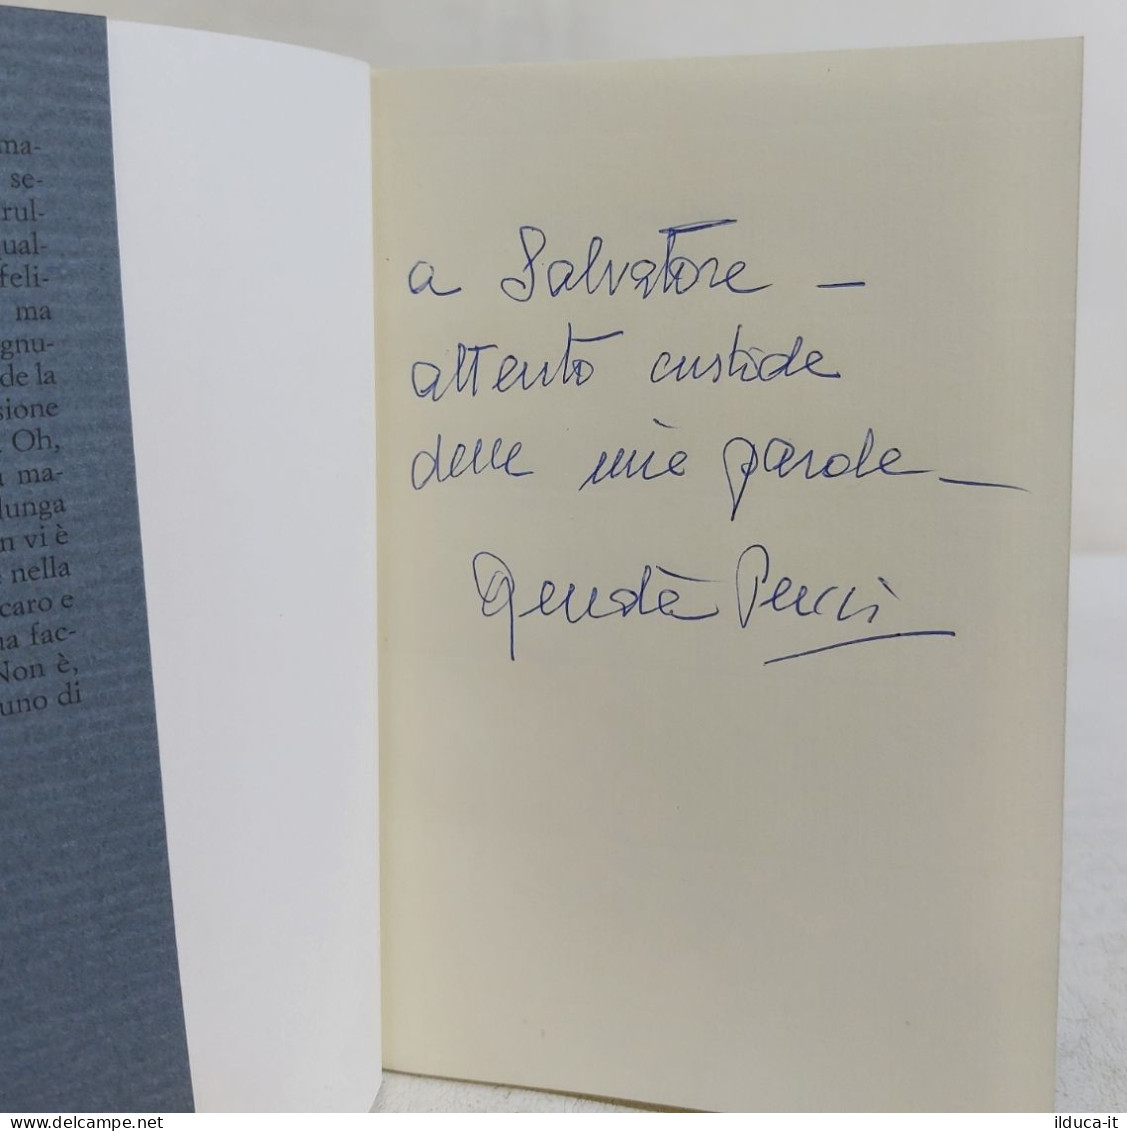 ma-
se-
rul-
qual-
feli-
ma
gnu-
de la
sione
. Oh,
ma-
lunga
n vi è
nella
caro e
na fac-
Non è,
uno di
a Salvatore –
attento custode
delle mie parole –
delcampe.net
ilduca-it